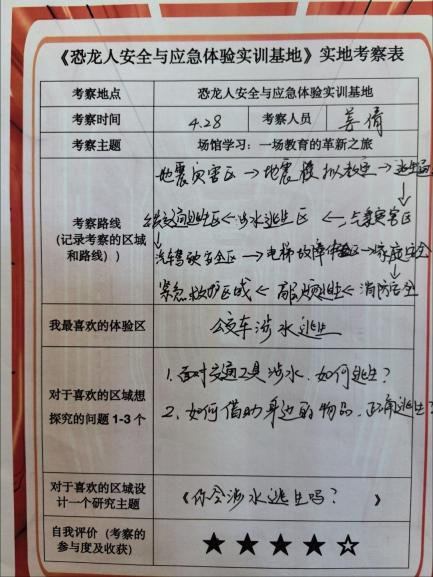 《恐龙人安全与应急体验实训基地》实地考察表
考察地点 恐龙人安全与应急体验实训基地
考察时间 4.28 考察人员 姜倩
考察主题 场馆学习：一场教育的革新之旅
考察路线
(记录考察的区域
和路线))
地震灾害区→地震模拟教室→逃生
↓
交通逃生区←涉水逃生区←气象灾害区
↓
汽车驾驶安全区→电梯故障体验区→家庭安全
↓
紧急救护区域←高层烟逃生←消防安全
我最喜欢的体验区 公交车涉水逃生
对于喜欢的区域想
探究的问题 1-3 个
1.面对交通工具涉水，如何逃生？
2、如何借助身边的物品，正确逃生？
对于喜欢的区域设
计一个研究主题
《你会涉水逃生吗？ 》
自我评价（考察的
参与度及收获）
★★★★☆